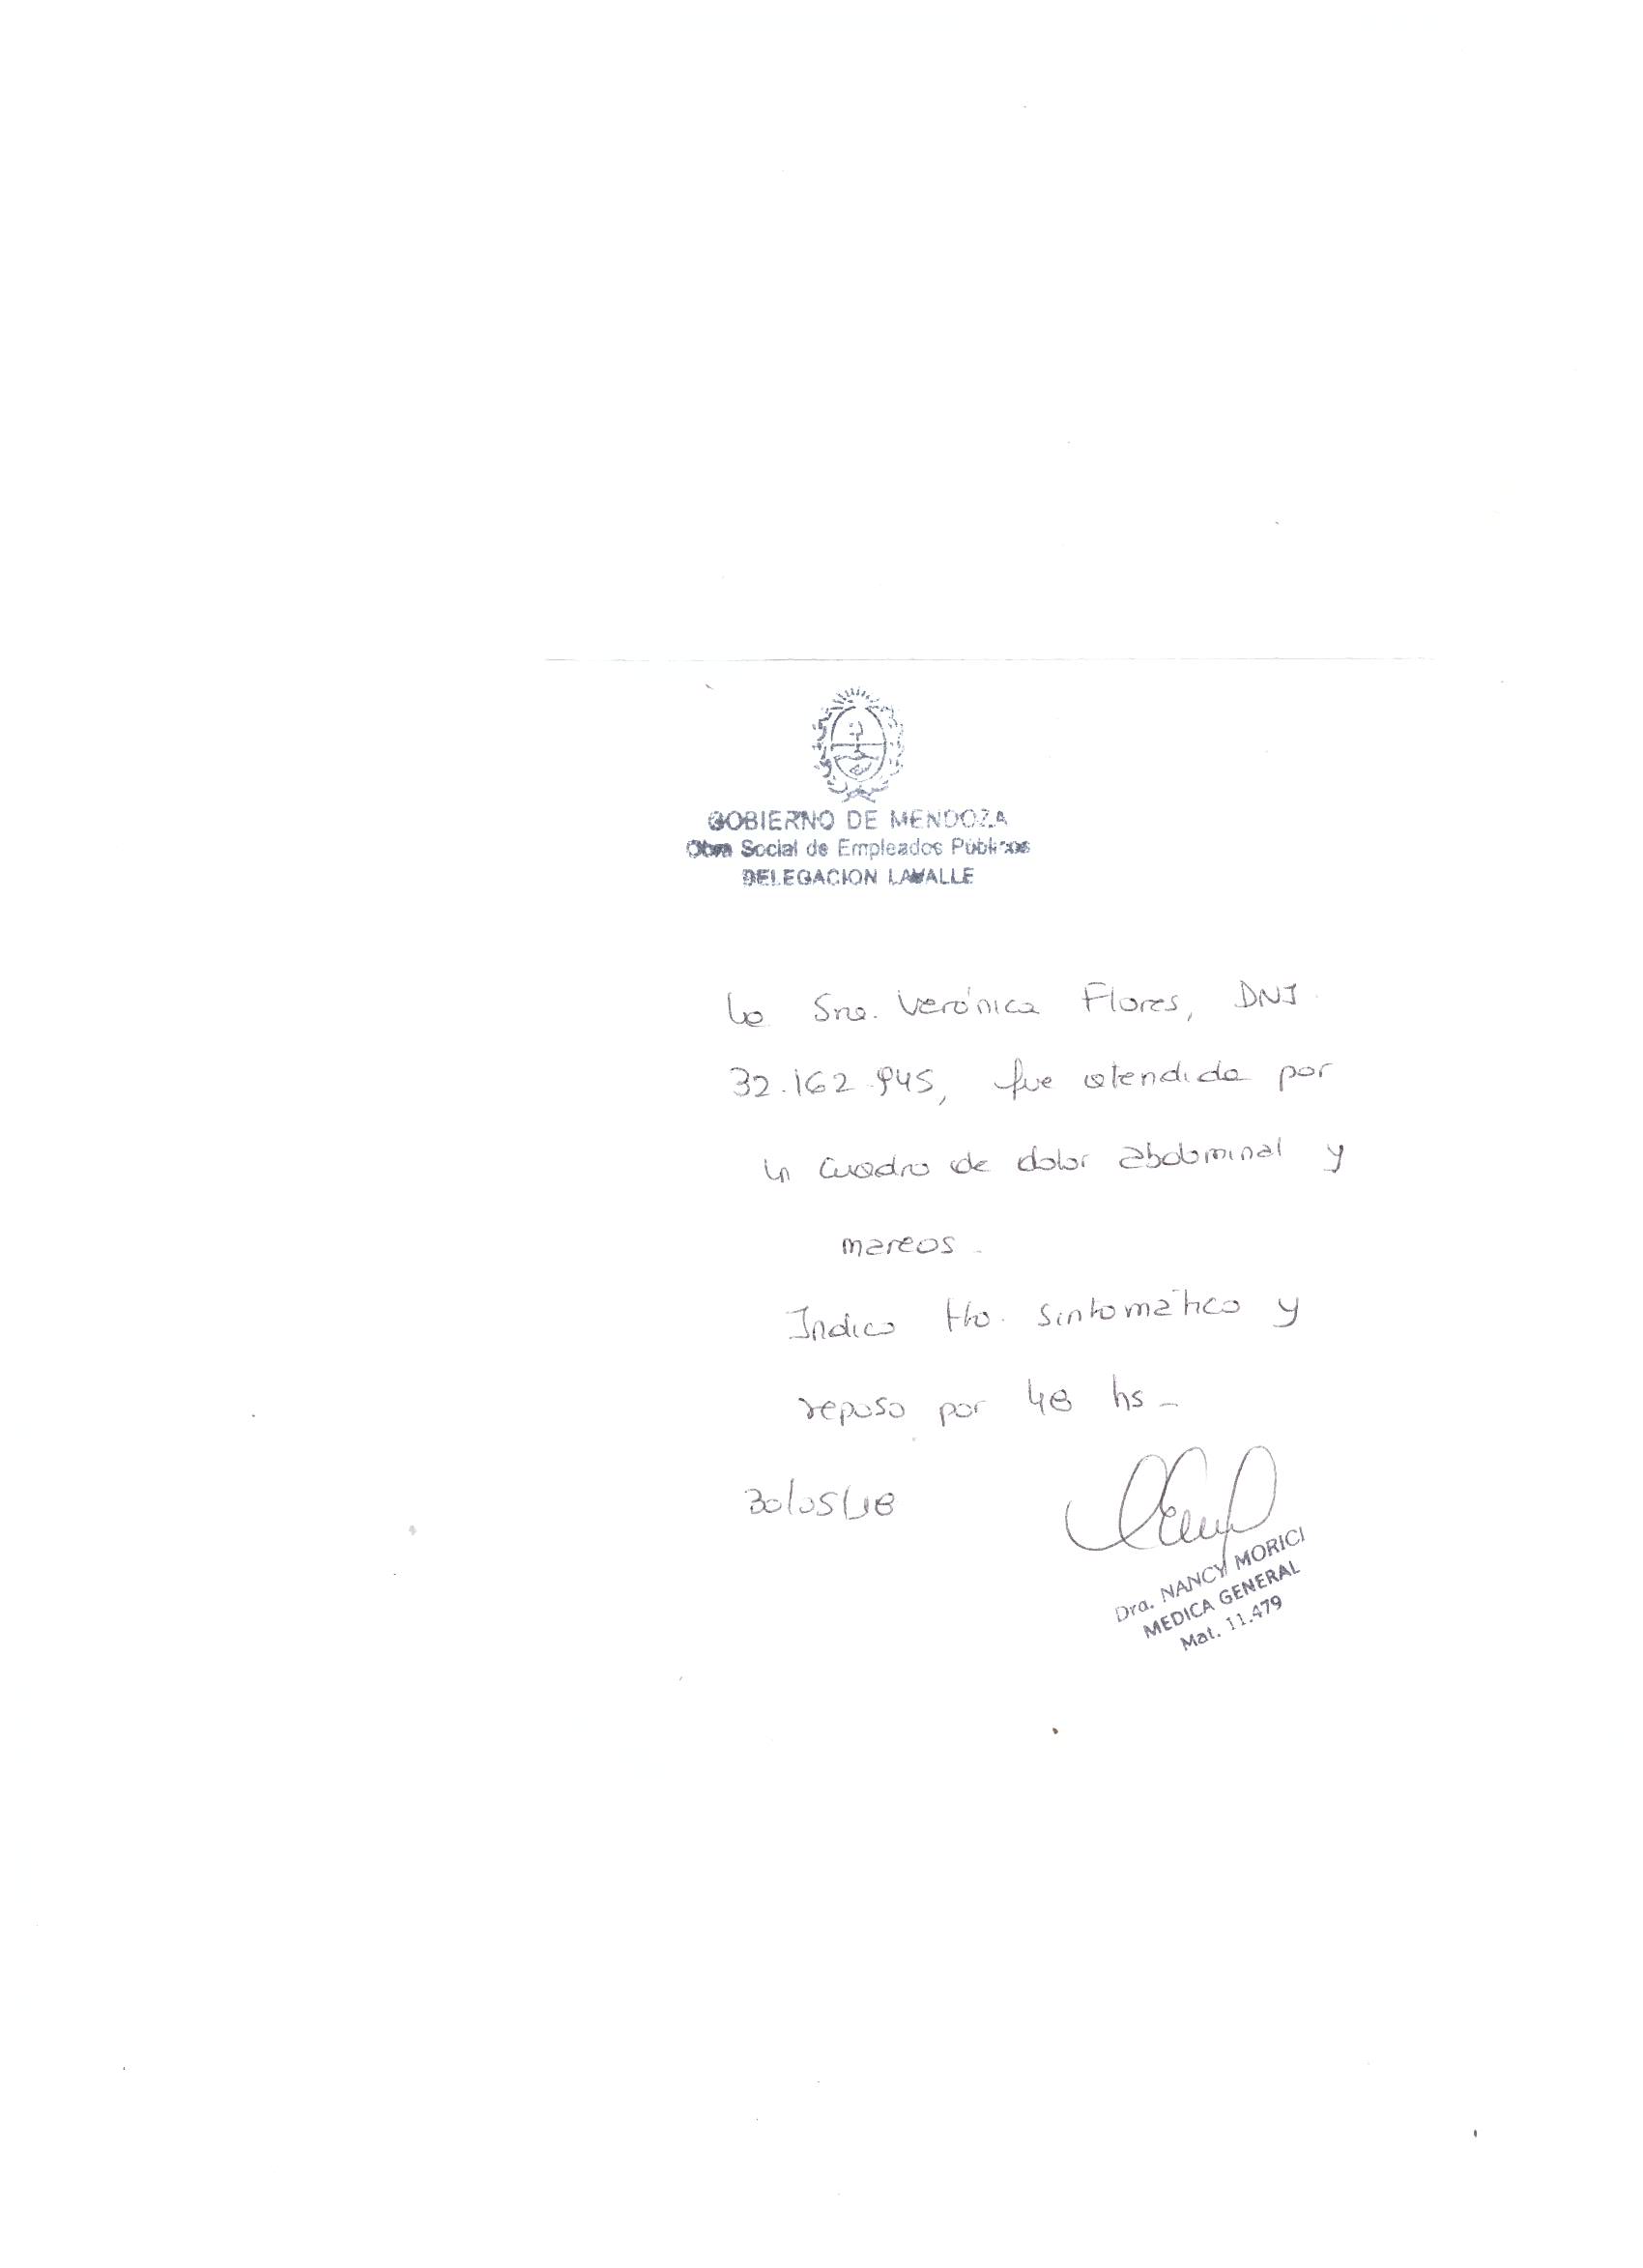 GOBIERNO DE MENDOZA
Obra Social de Empleados Públicos
DELEGACION LAVALLE
La Sra. Verónica Flores, DNI
32.162.945, fue atendida por
un cuadro de dolor abdominal y
mareos -
Indico tto. sintomático y
reposo por 48 hs -
30/05/18
Dra. NANCY MORICI
MEDICA GENERAL
Mat. 11.479